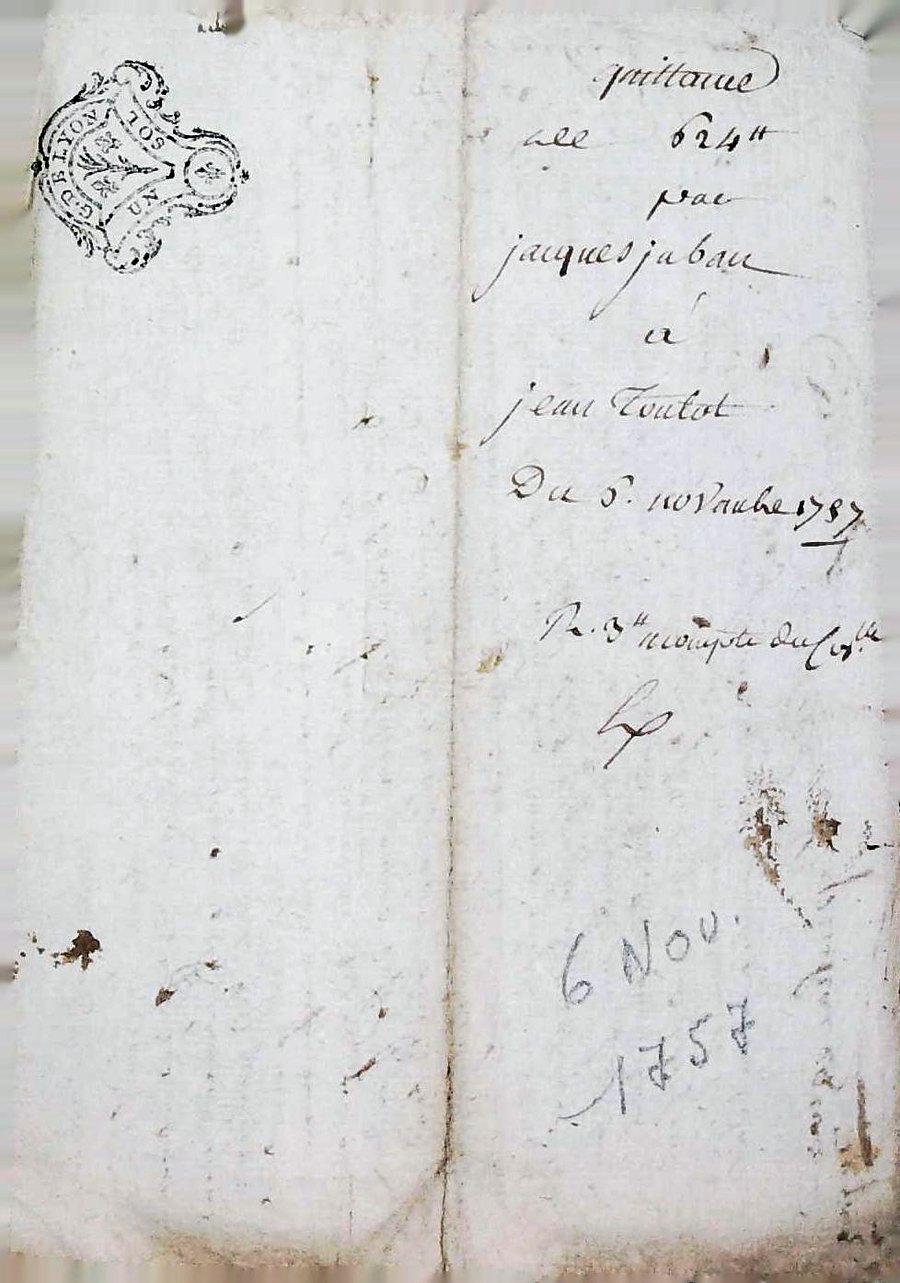 G. DE LYON
UN SOL
quittance
de 624ᵗᵗ
par
jacques juban
à
jean Toulot
Du 6. novembre 1757
3ᵗᵗ compte du
6 Nov.
1757